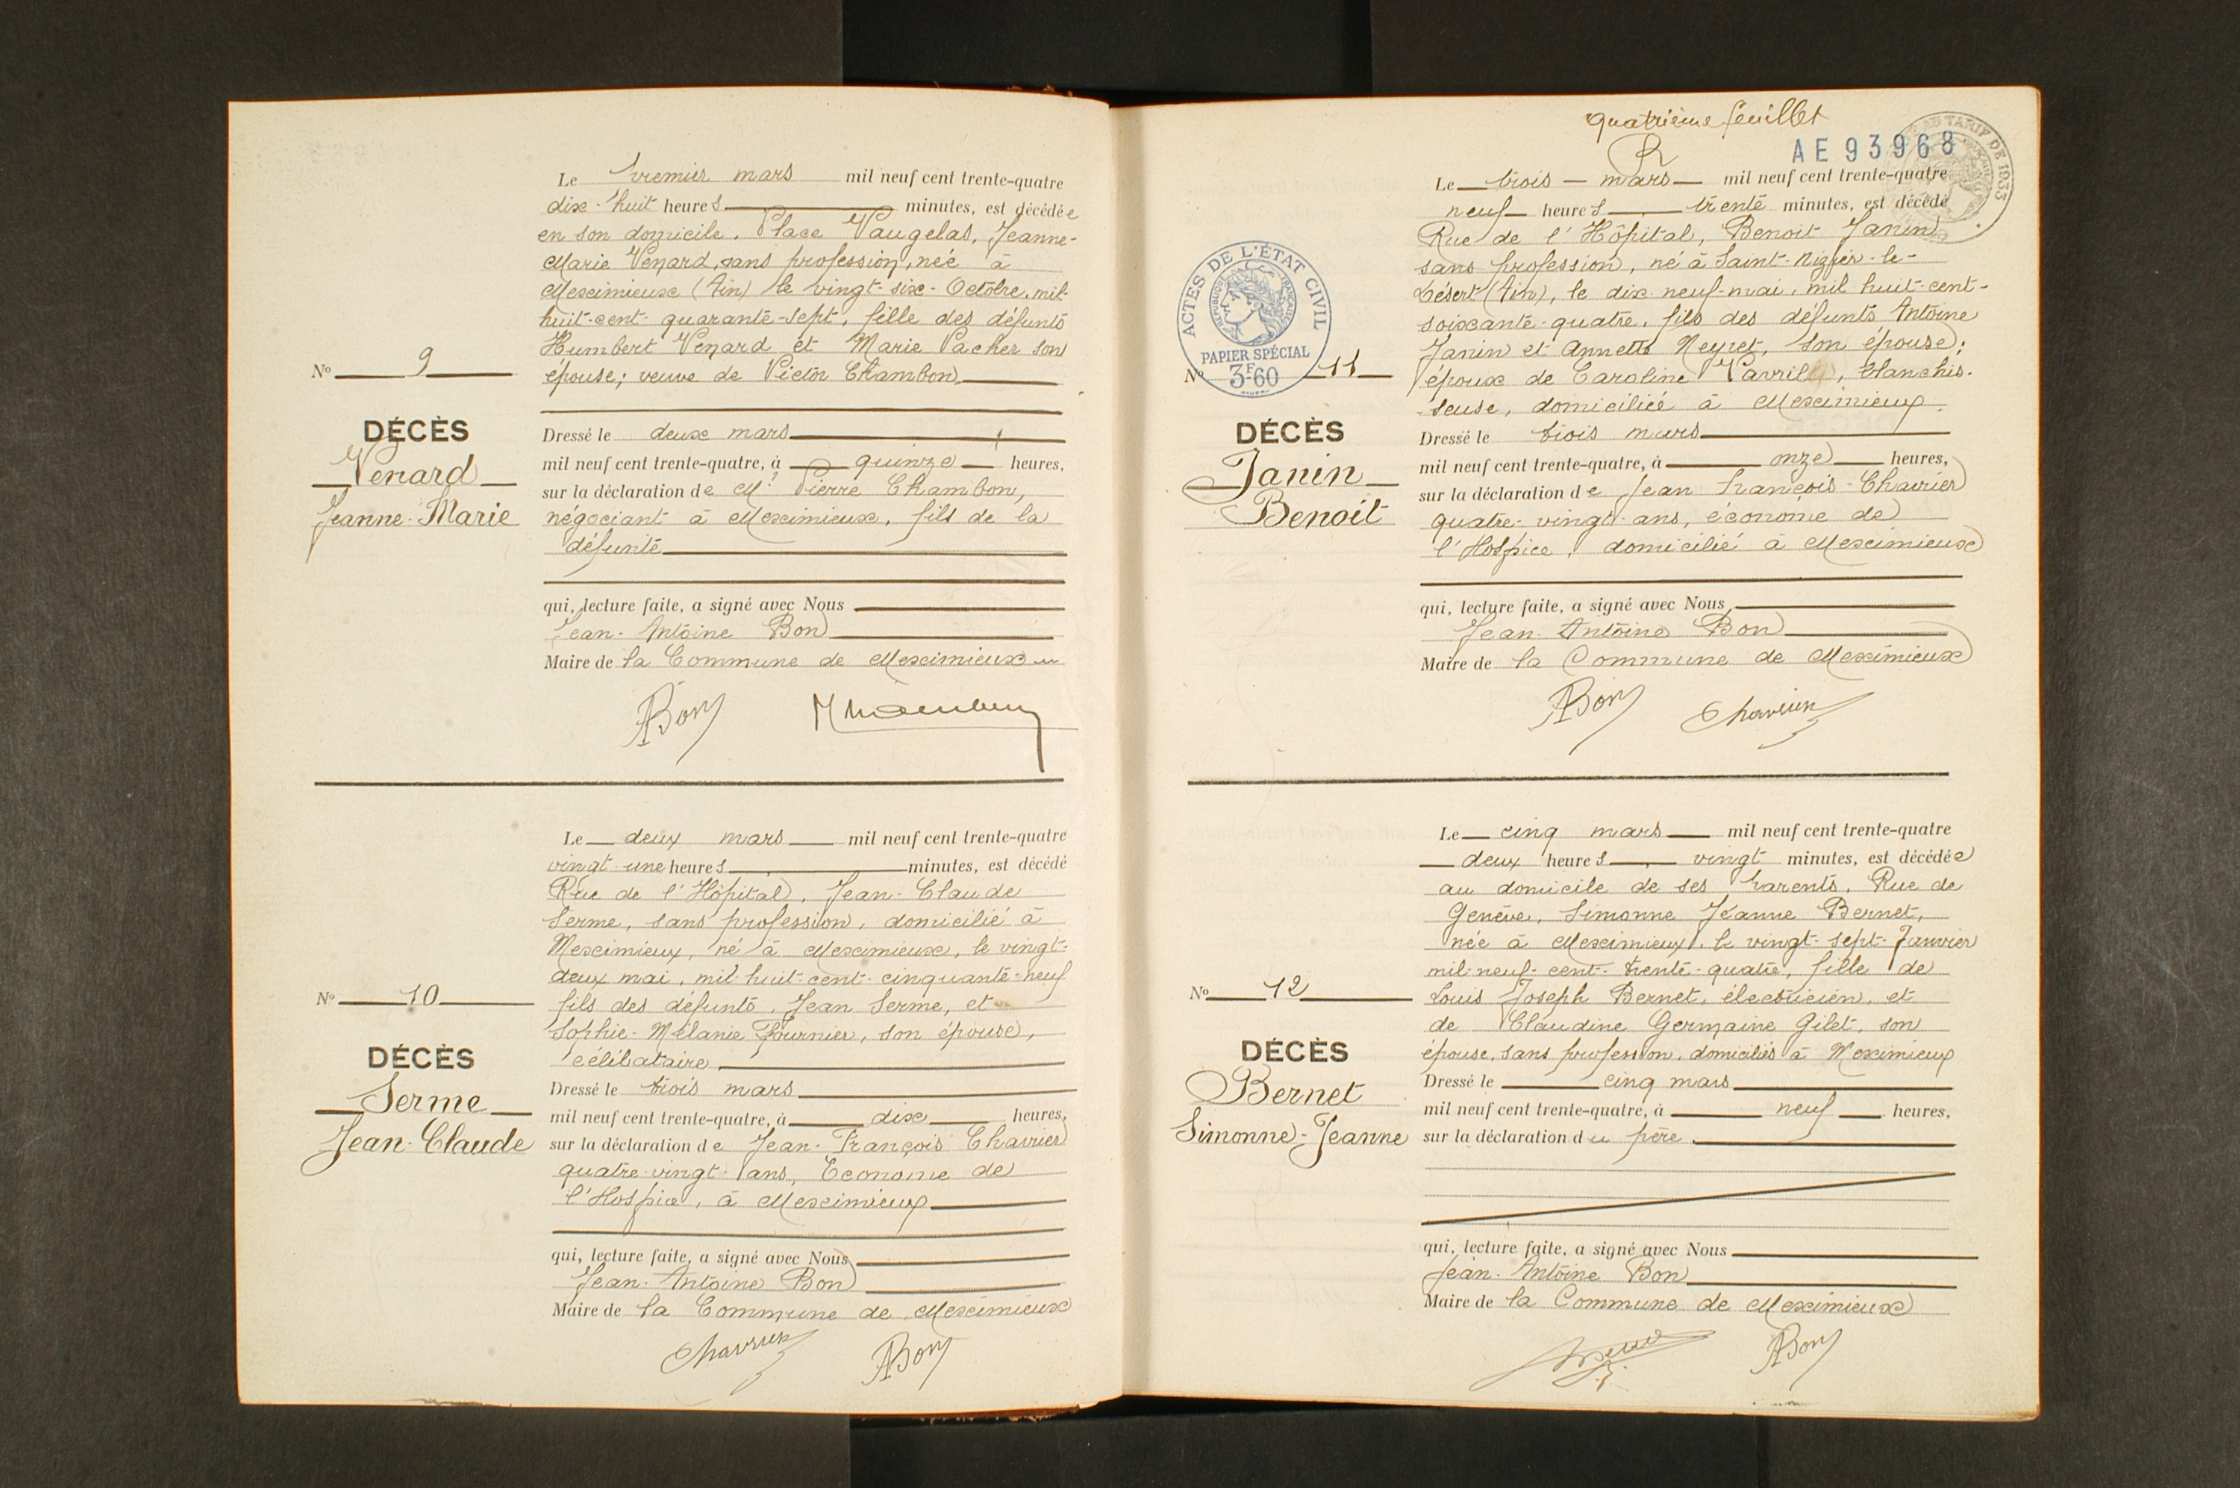 Le premier mars mil neuf cent trente-quatre
dix-huit heures minutes, est décédée
en son domicile, Place Vaugelas, Jeanne-
Marie Venard, sans profession, née à
Meximieux (Ain) le vingt-six-Octobre, mil-
huit-cent-quarante-sept, fille des défunts
Humbert Venard et Marie Pacher son
épouse; veuve de Victor Chambon
Nº 9
DÉCÈS
Venard
Jeanne-Marie
Dressé le deux mars
mil neuf cent trente-quatre, à quinze heures,
sur la déclaration de Mr Pierre Chambon,
négociant à Meximieux, fils de la
défunte
qui, lecture faite, a signé avec Nous
Jean-Antoine Bon
Maire de la Commune de Meximieux
ABon
Le deux mars mil neuf cent trente-quatre
vingt-une heures minutes, est décédé
Rue de l'Hôpital, Jean-Claude
Serme, sans profession, domicilié à
Meximieux, né à Meximieux, le vingt-
deux mai, mil-huit-cent-cinquante-neuf
fils des défunts, Jean Serme, et
Sophie-Mélanie Fournier, son épouse,
célibataire
Nº 10
DÉCÈS
Serme
Jean-Claude
Dressé le trois mars
mil neuf cent trente-quatre, à dix heures,
sur la déclaration de Jean-François Chavrier
quatre-vingt-ans, Econome de
l'Hospice, à Meximieux
qui, lecture faite, a signé avec Nous
Jean-Antoine Bon
Maire de la Commune de Meximieux
Chavrier ABon
quatrième feuillet
AE 93968
TARIF DE 1933
Le trois mars mil neuf cent trente-quatre
neuf heures trente minutes, est décédé
Rue de l'Hôpital, Benoit Janin
sans profession, né à Saint-Nizier-le-
Désert (Ain), le dix-neuf-mai, mil huit-cent-
soixante-quatre, fils des défunts Antoine
Janin et Annette Neyret, son épouse;
époux de Caroline, blanchis-
seuse, domiciliée à Meximieux
ACTES DE L'ÉTAT CIVIL
RÉPUBLIQUE FRANÇAISE
PAPIER SPÉCIAL
3F60
Nº 11
DÉCÈS
Janin
Benoit
Dressé le trois mars
mil neuf cent trente-quatre, à onze heures,
sur la déclaration de Jean François-Chavrier
quatre-vingt-ans, économe de
l'Hospice, domicilié à Meximieux
qui, lecture faite, a signé avec Nous
Jean-Antoine Bon
Maire de la Commune de Meximieux
ABon Chavrier
Le cinq mars mil neuf cent trente-quatre
deux heures vingt minutes, est décédée
au domicile de ses parents, Rue de
Genève, Simonne Jeanne Bernet,
née à Meximieux, le vingt-sept-Janvier
mil-neuf-cent-trente-quatre, fille de
Louis Joseph Bernet, électricien, et
de Claudine Germaine Gilet, son
épouse, sans profession, domiciliés à Meximieux
Nº 12
DÉCÈS
Bernet
Simonne-Jeanne
Dressé le cinq mars
mil neuf cent trente-quatre, à neuf heures,
sur la déclaration du père
qui, lecture faite, a signé avec Nous
Jean-Antoine Bon
Maire de la Commune de Meximieux
ABon